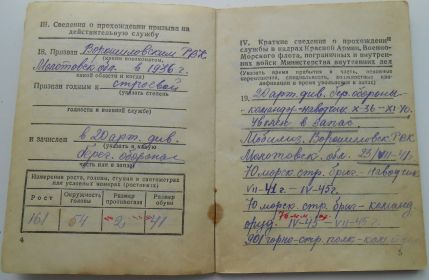 III. Сведения о прохождении призыва на
действительную службу
18. Призван Ворошиловским РВК
Молотовск. обл. в 1936 г.
какой области и когда)
Призван годным к строевой
(указать степень
годности к военной службе)
и зачислен в 20 арт. див.
(указать в какую
берег. обороны
часть или в запас)
Измерения роста, головы, ступни в сантиметрах
или условных номерах (ростовках)
Рост
Окружность головы
Размер противогаза
Размер обуви
161
54
2
41
4
IV. Краткие сведения о прохождении
службы в кадрах Красной Армии, Военно-
Морского флота, пограничных и внутрен-
них войск Министерства внутренних дел
(Указать время прибытия в часть, основные
специальность,
кация и время увольнения в запас)
19. 20 арт. див. бер. обороны-
командор-наводчик X-36-XI-40.
Уволен в запас.
Мобилиз. Ворошиловск РВК
Молотовск. обл. 23/VII-41.
70 морск. стр. бриг- наводчик
VII-41 г.- IV-45 г.
70 морск. стр. бриг- команд.
оруд. 76 м.м. IV-45 - VII-45 г.
901 горно-стр. полк-
5